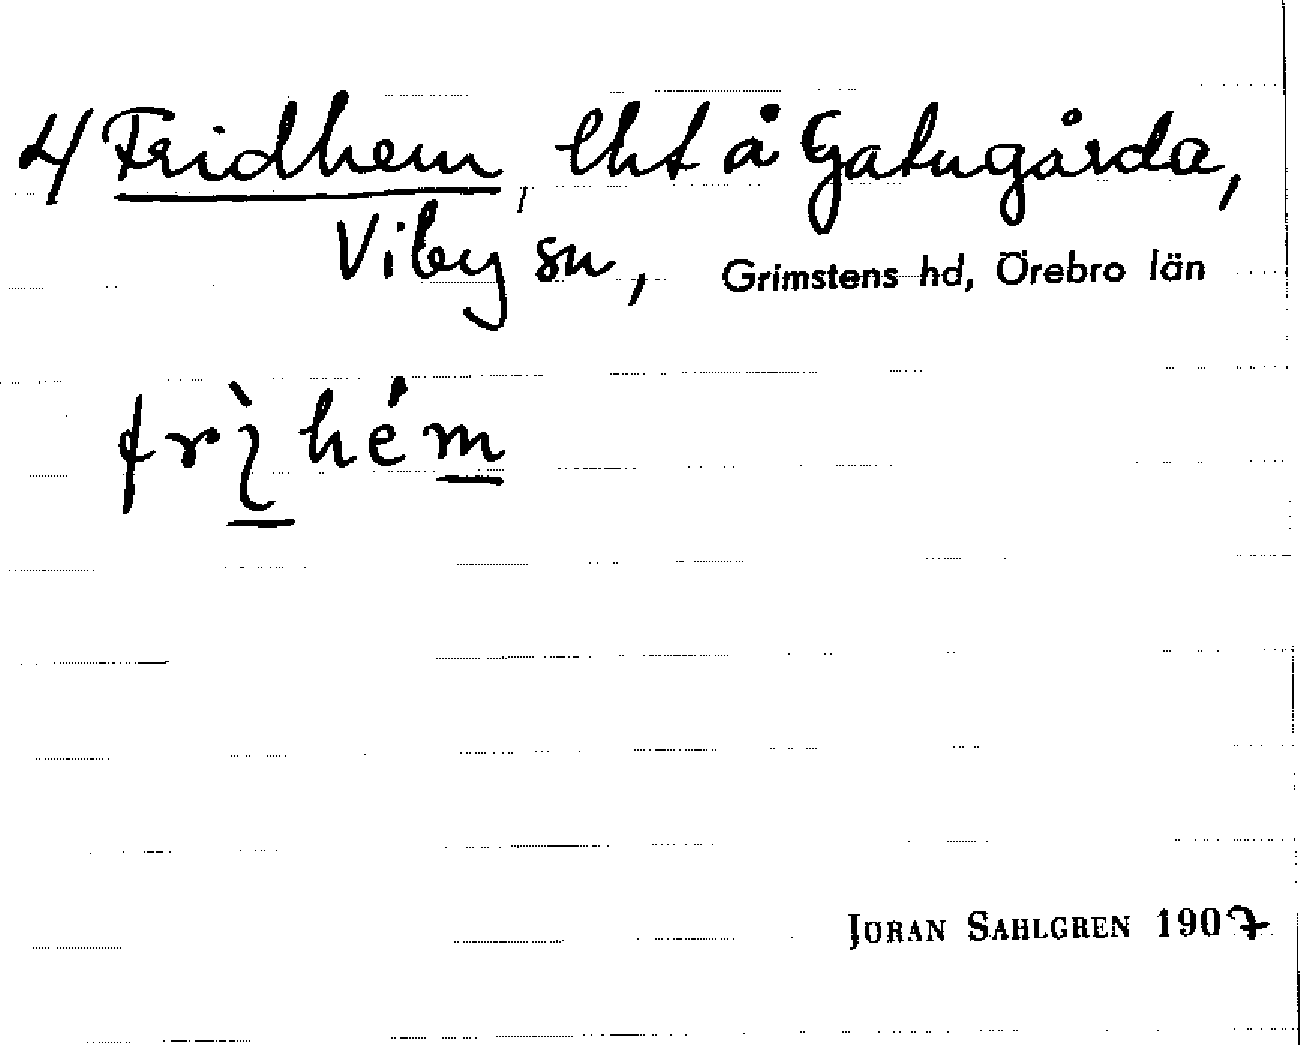 4 Fridhem, lht å Gatugårda,
Viby sn, Grimstens hd, Örebro län
frìhém
JÖRAN SAHLGREN 1907